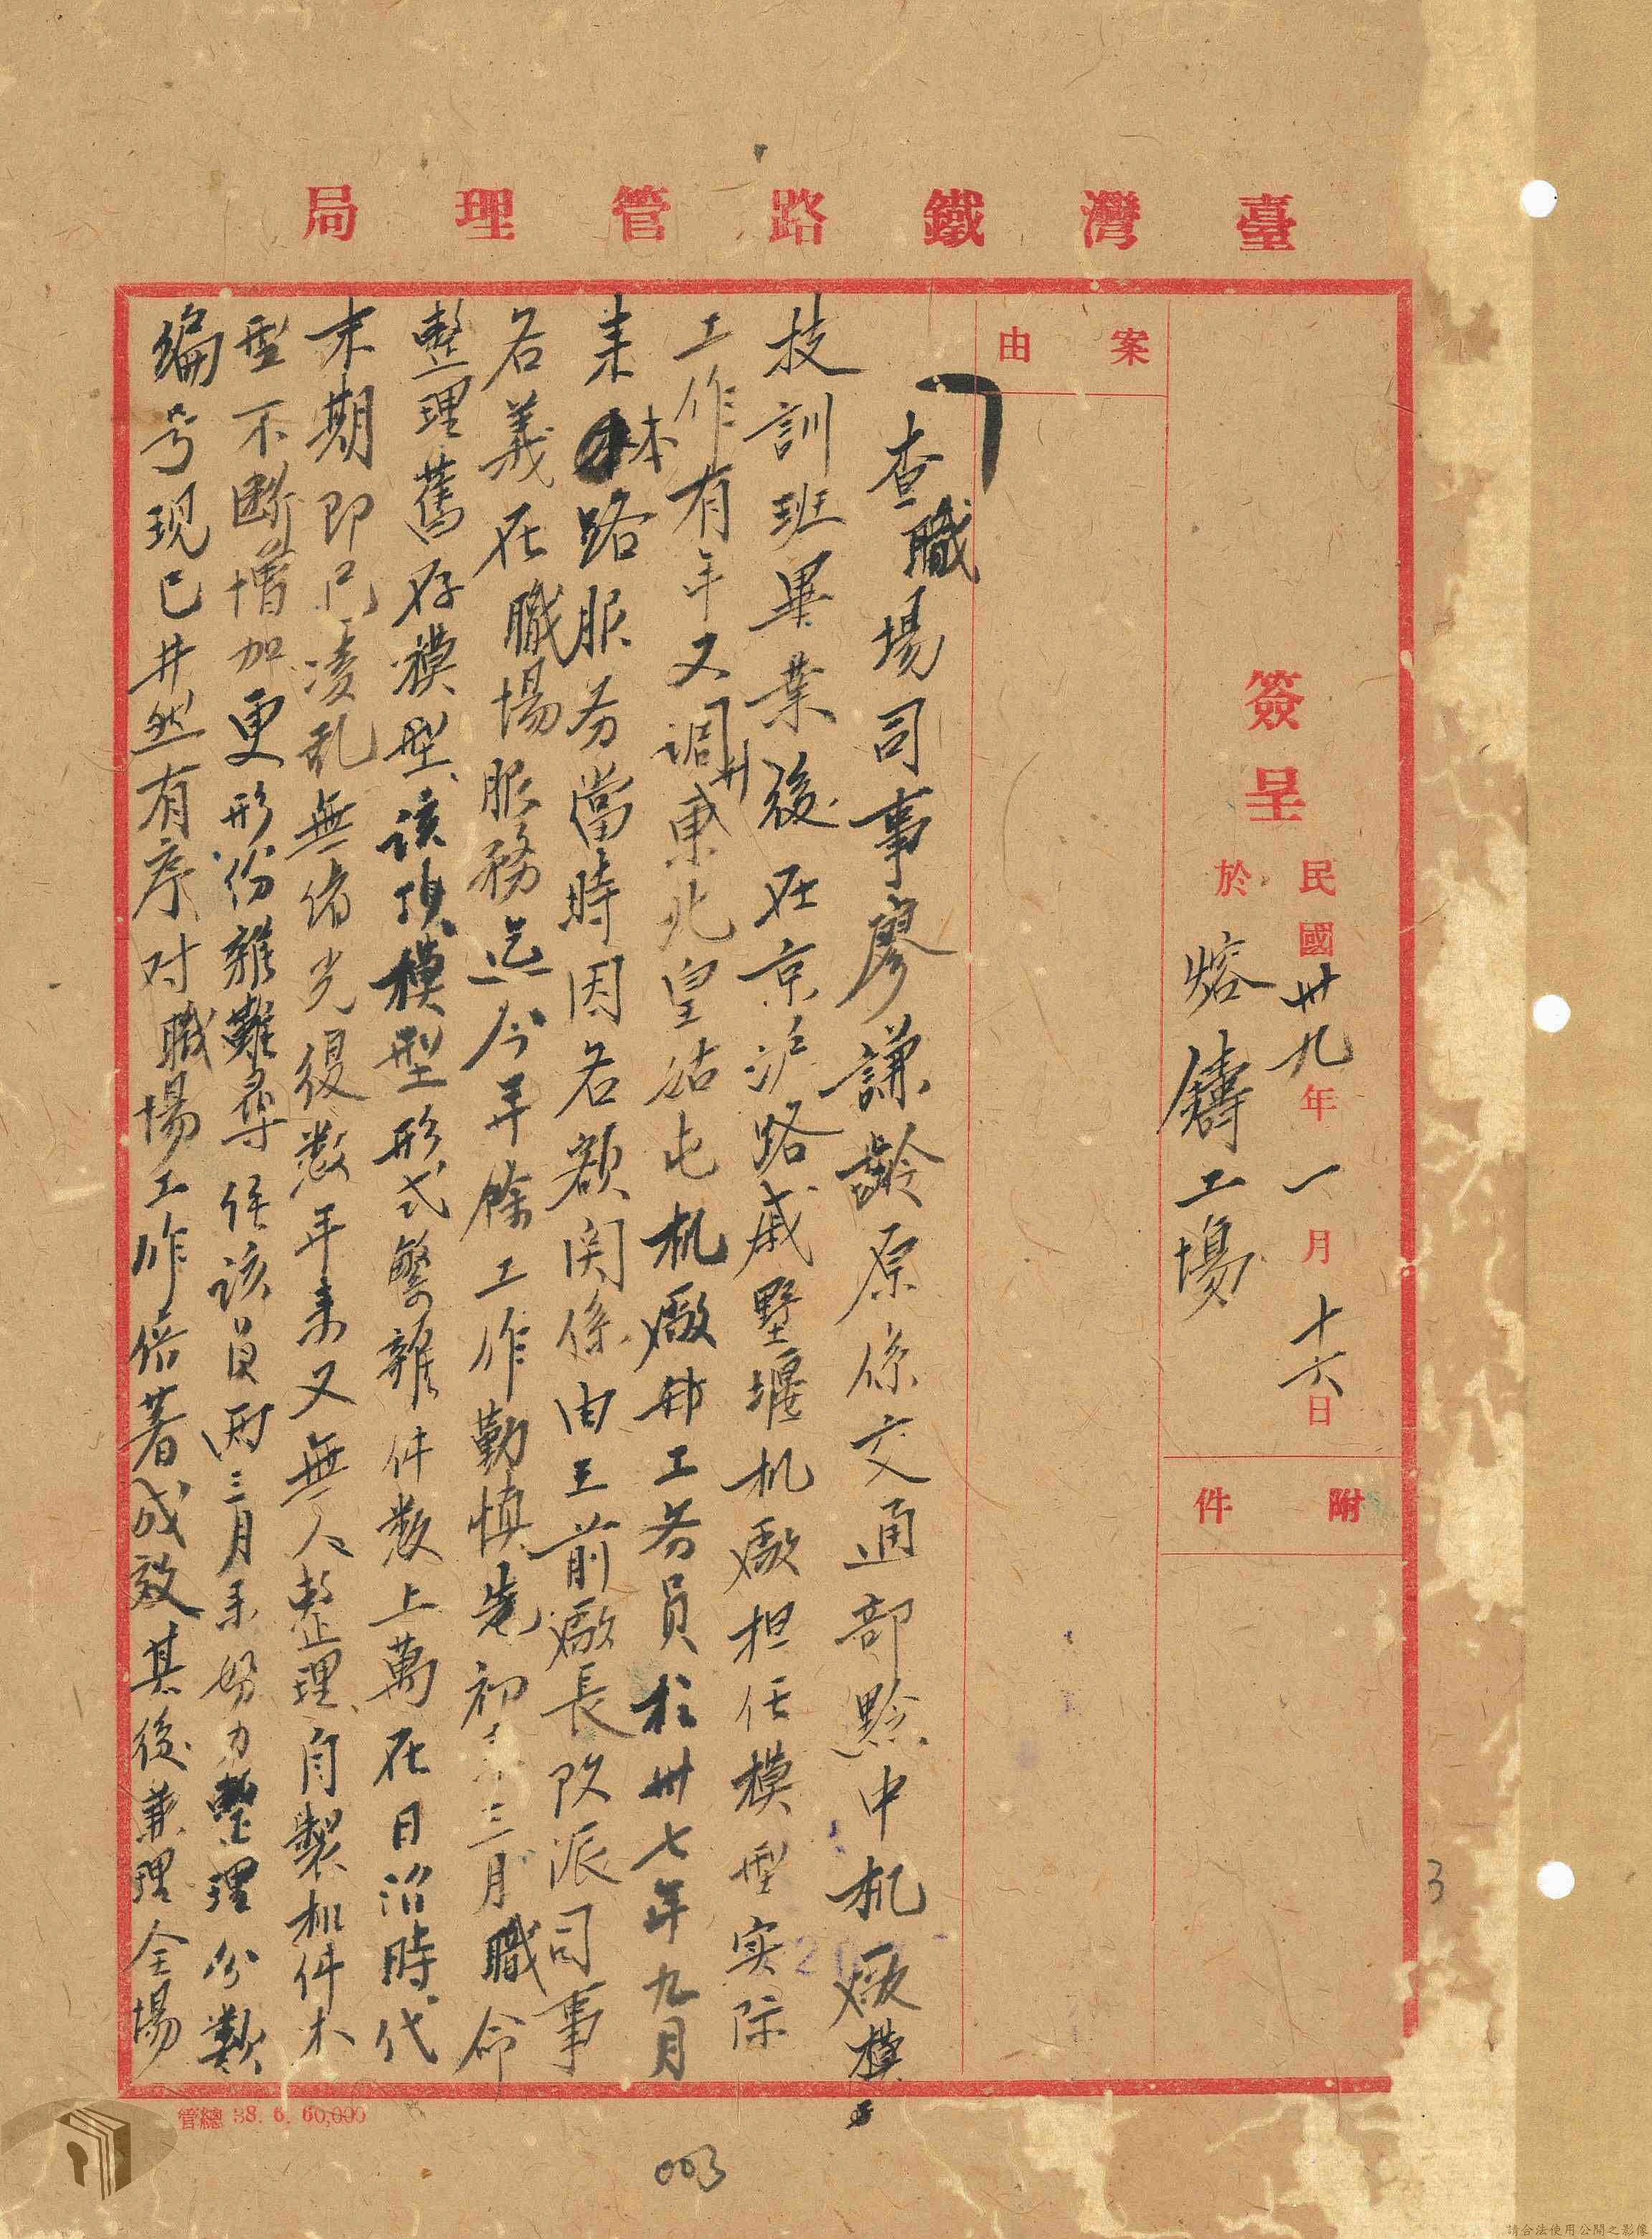 臺灣鐵路管理局
簽呈
民國卅九年一月十六日
於熔鑄工場
附件
案由
查職場司事廖謙齡原係交通部黔中机厰模
技訓班畢業後在京沪路戚墅堰机廠担任模型实际
工作有年又调升東北皇姑屯机廠帮工务員於卅七年九月
来本路服务當時因名額関係由王前廠長改派司事
名義在職場服務迄今年餘工作勤慎先初三月職命
整理舊存模型、該項模型形式繁雜件数上萬在日治時代
末期即已凌乱無緒光復数年来又無人整理、自製机件木
型不断增加更形份雜難尋任該員兩三月来努力整理分類
編号現已井然有序对職場工作倍著成效其後兼理全場
管總 38. 6. 60,000
003
3
請合法使用公開之影像